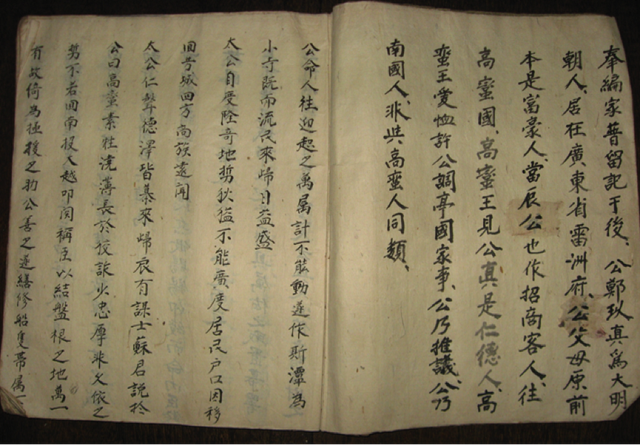 奉編家普留記于後、公鄭玖真爲大明
朝人、居在廣東省雷洲府、公父母原前
本是富豪人、當辰公也作招商客人、往
高蛮國、高蛮王見公真是仁德人、高
蛮王愛恤許公調亭國家事、公乃推議、公乃
南國人、非共高蛮人同類、
公命人往迎起之萬属計不能動遂作斯潭為
小寺既而流民來帰日益盛
太公自受陸奇地势狄猛不能廣度居民户口因移
回芳城四方商旅遠聞
太公仁聲德澤皆慕來帰辰有謀士蘇君説於
公曰高蛮素性澆薄長於狡詠少忠厚来久依之
势不若回南投大越叩関稱臣以結盤根之地萬一
有故倚為強援之助公善之遂繕修船隻帶偶一